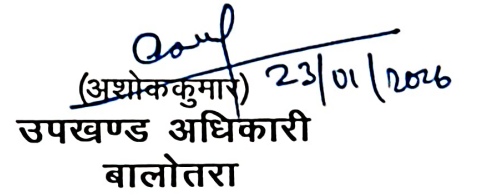 (अशोककुमार) 23/01/2026
उपखण्ड अधिकारी
बालोतरा